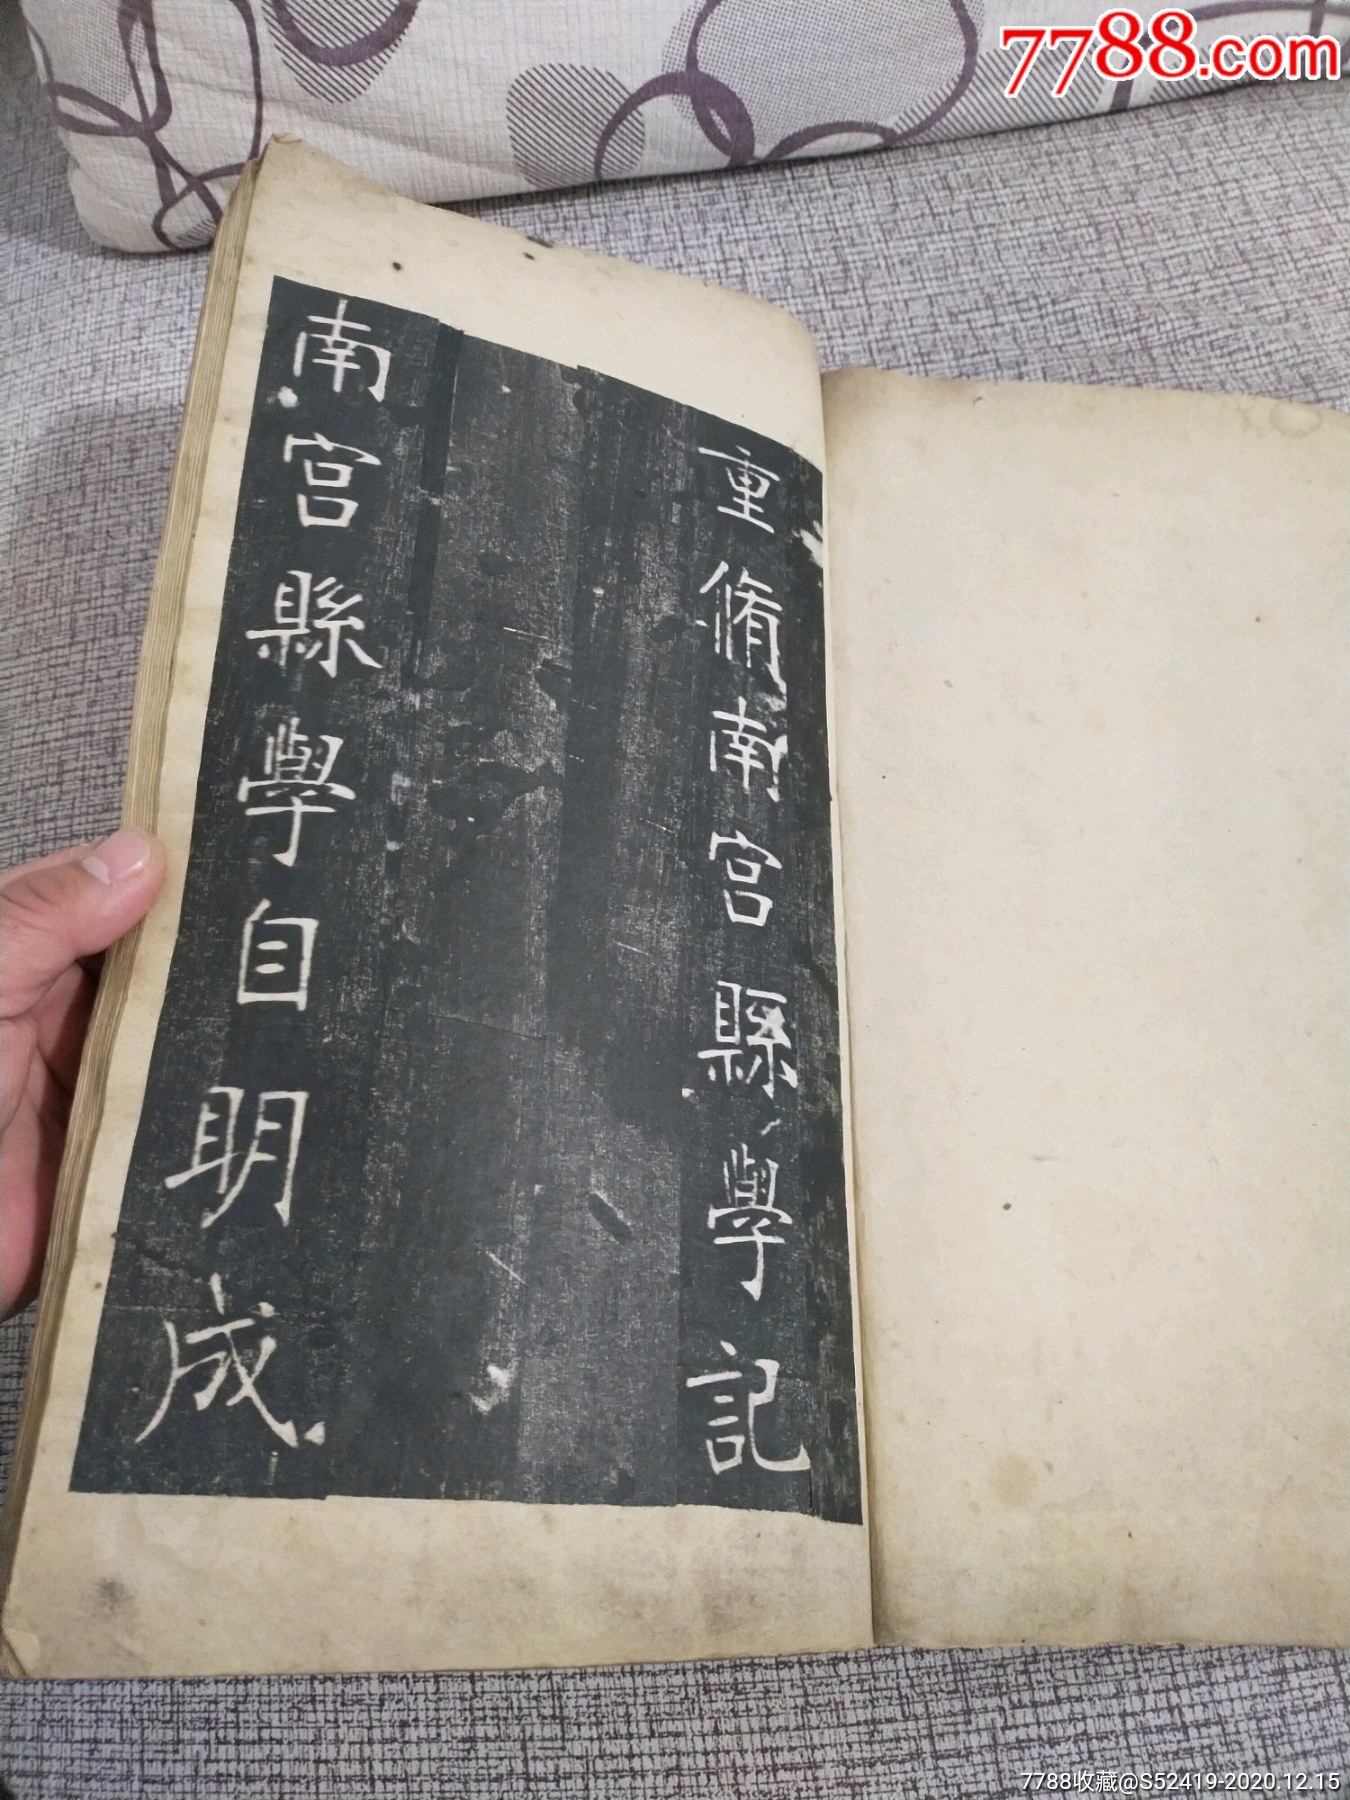 7788.com
重脩南宮縣學記
南宮縣學自明成
7788收藏@S52419-2020.12.15